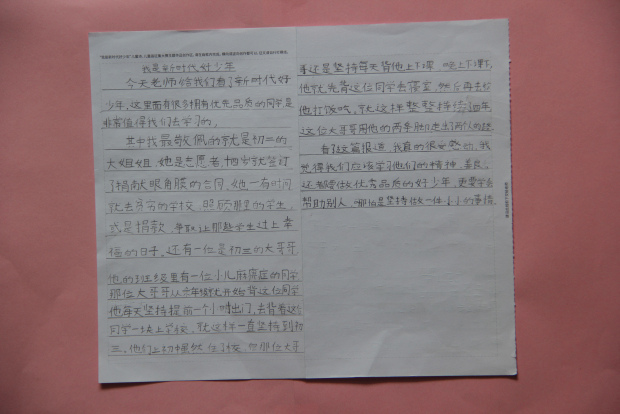 我是新时代好少年
今天老师给我们看了新时代好
少年,这里面有很多拥有优先品质的同学,是
非常值得我们去学习的。
其中我最敬佩的就是初二的
大姐姐,她是志愿者,十四岁就签订
了捐献眼角膜的合同,她一有时间
就去贫穷的学校,照顾那里的学生,
或是捐款,争取让那些学生过上幸
福的日子。还有一位是初三的大哥哥
他的班级里有一位小儿麻痹症的同学
那位大哥哥从六年级就开始背这位同学
他每天坚持提前一个小时出门,去背着这位
同学一块上学校,就这样一直坚持到初
三。他们上初中虽然住了校,但那位大哥
哥还是坚持每天背他上下课,晚上下课,
他就先背这位同学去寝室,然后再去给
他打饭吃,就这样整整坚持了四年
这位大哥哥用他的两条腿走出了两个人的路
看了这篇报道,我真的很受感动,我
觉得我们应该学习他们的精神,并且,
还都要做优秀品质的好少年,更要学会
帮助别人,哪怕是坚持做一件小小的事情